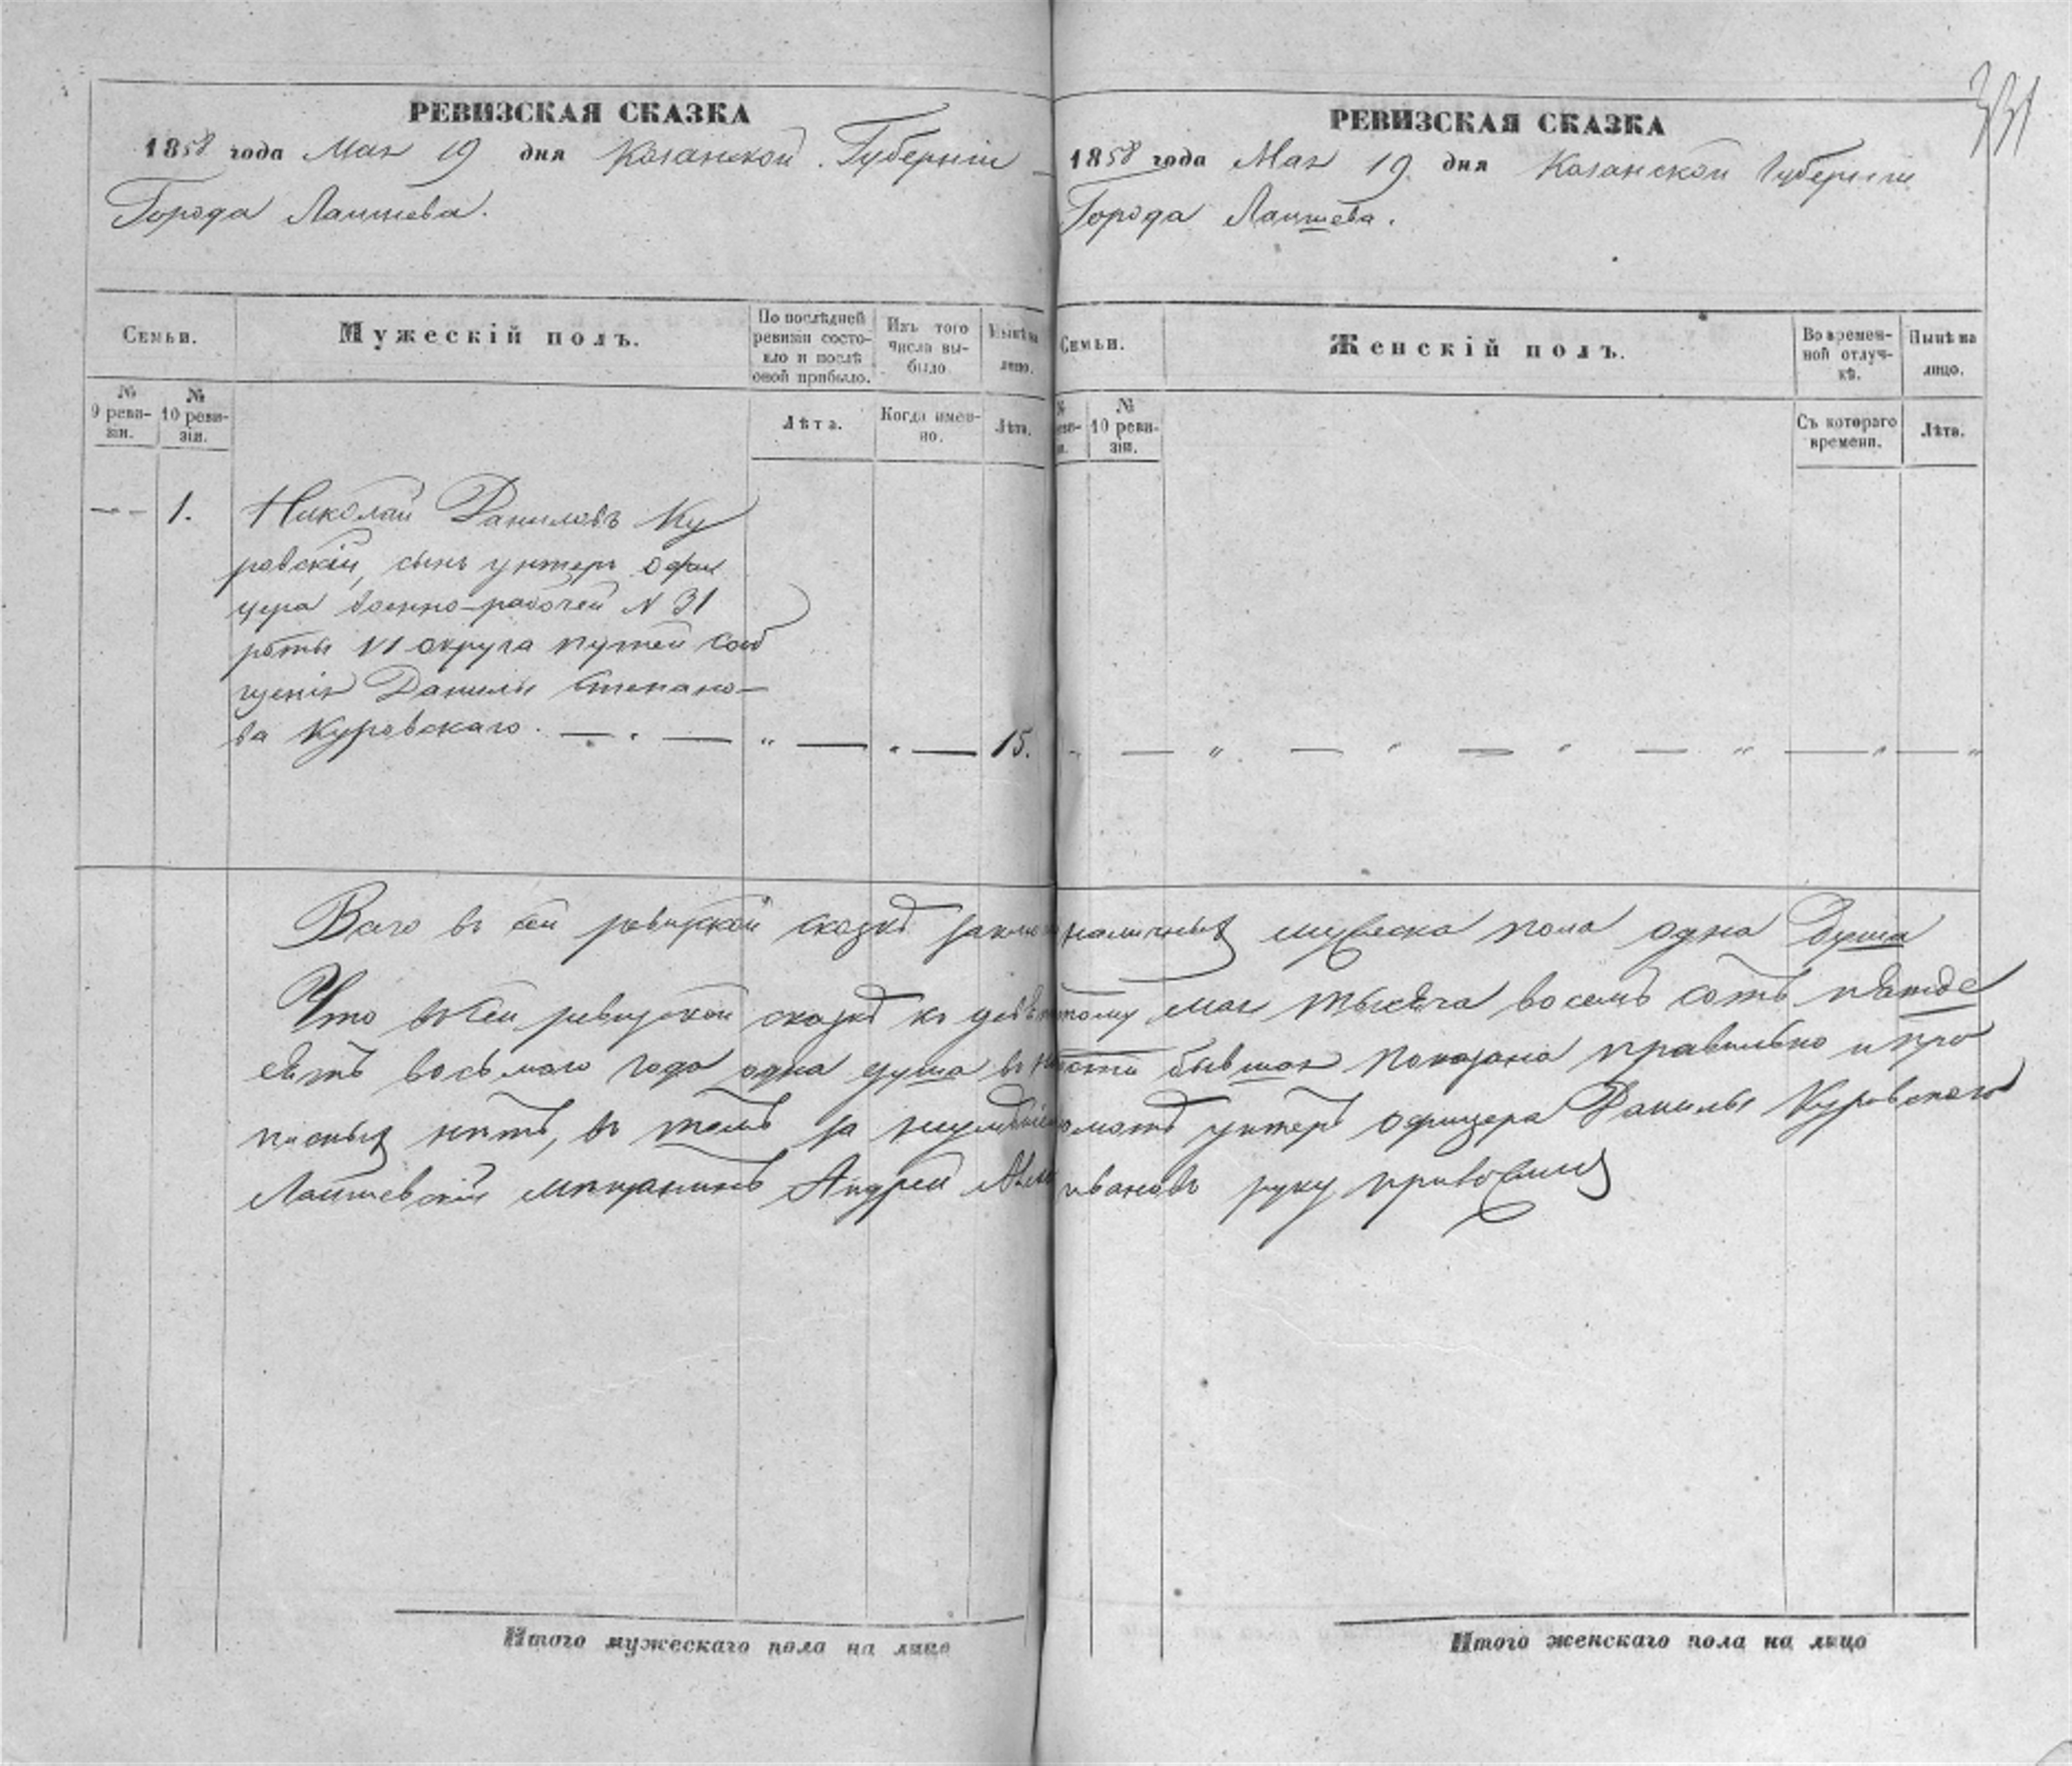 331
РЕВИЗСКАЯ СКАЗКА
1858 года Мая 19 дня Казанской Губерніи
Города Лаишева.
Семьи.
Мужескій полъ.
По послѣдней ревизіи состояло и послѣ оной прибыло.
Изъ того числа выбыло.
Нынѣ на лицо.
№ 9 ревизіи.
№ 10 ревизіи.
Лѣта.
Когда именно.
Лѣта.
1.
Николай Даниловъ Ку
ровскій, сынъ унтеръ офи
цера военно-рабочей № 31
роты VI округа путей сооб
щенія Данилы Степано-
ва Куровскаго. — „ — „ — „ — 15.
РЕВИЗСКАЯ СКАЗКА
1858 года Мая 19 дня Казанской Губерніи
Города Лаишева.
Семьи.
Женскій полъ.
Во временной отлучкѣ.
Нынѣ на лицо.
№ ревизіи.
№ 10 ревизіи.
Съ котораго времени.
Лѣта.
Всего въ сей ревизской сказкѣ наличныхъ мужеска пола одна душа
Что въ сей ревизской сказкѣ къ мая тысяча восемь сотъ пятьде
сятъ восьмаго года одна душа бывшая показана правильно и про
писныхъ нѣтъ, въ томъ за унтеръ офицера Данилы Куровскаго
Лаишевскій мѣщанинъ Андрей Ивановъ руку приложилъ
Итого мужескаго пола на лицо
Итого женскаго пола на лицо